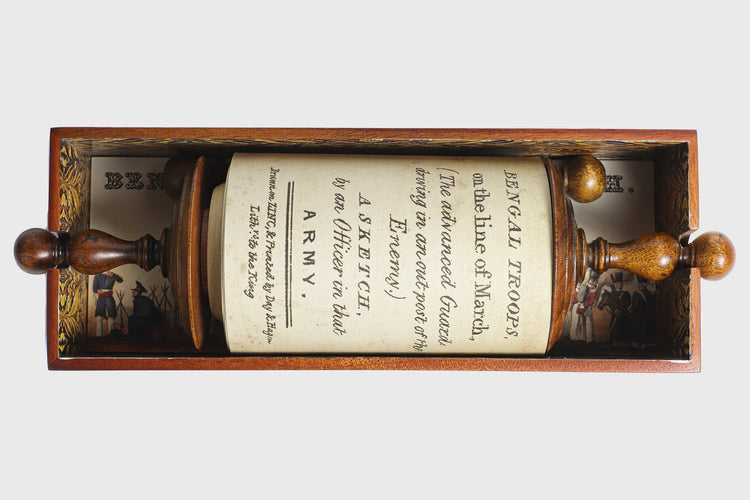 BENGAL TROOPS,
on the line of March,
(The advanced Guard.
driving in an out post of the
Enemy,)
A SKETCH,
by an Officer in that
ARMY,
Drawn on ZINC, & Printed by Day & Haghe
Lithrs to the King
BEN
H,